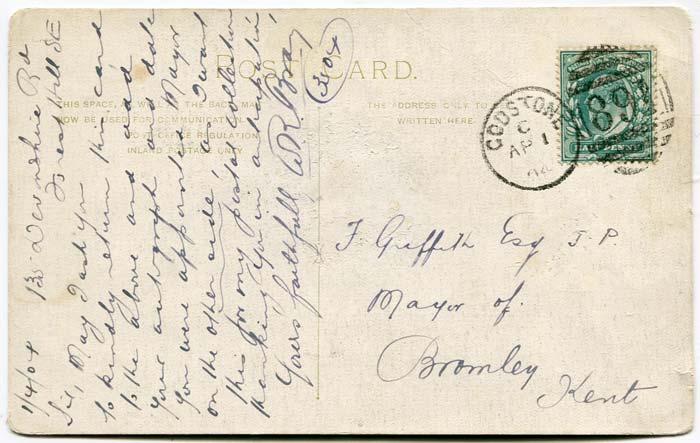 POST CARD.
THIS SPACE, AS WELL AS THE BACK, MAY
NOW BE USED FOR COMMUNICATION
POST OFFICE REGULATION
INLAND POSTAGE ONLY
THE ADDRESS ONLY TO
WRITTEN HERE
GODSTONE
C
AP 1
04
89
HALFPENNY
1/4/04 13 Devonshire Rd
Forest Hill SE
Sir, May I ask you
to kindly return this card
to the above and add
your autograph and date
you were appointed Mayor
on the other side, as I want
this for my postal collection
thanking you in anticipation
Yours faithfully W R Bray
304
F Griffith Esq J.P.
Mayor of.
Bromley
Kent